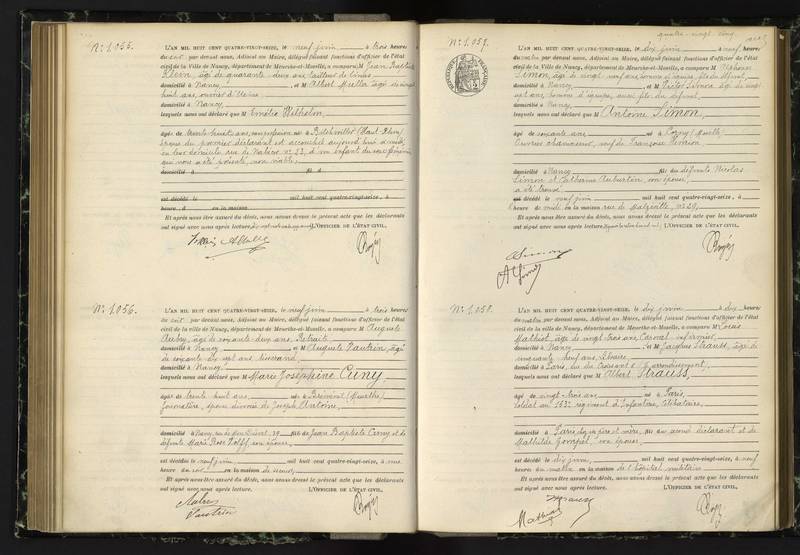 N° 1.055.
L'AN MIL HUIT CENT QUATRE-VINGT-SEIZE, le neuf juin à trois heures
du soir par devant nous, Adjoint au Maire, délégué faisant fonctions d'officier de l'état
civil de la Ville de Nancy, département de Meurthe-et-Moselle, a comparu M Jean Baptiste
Klein, âgé de quarante deux ans, tailleur de limes
domicilié à Nancy, et M Albert Muller âgé de vingt
huit ans, ouvrier d'usine
domicilié à Nancy,
lesquels nous ont déclaré que M Emélie Wilhelm,
âgée de trente huit ans, sans profession née à Bitschwiller (Haut-Rhin)
épouse du premier déclarant est accouchée aujourd'hui à midi,
en leur domicile rue de n° 33, d'un enfant du sexe féminin
qui nous a été présenté, non viable,
domicilié à fil d
est décédé le mil huit cent quatre-vingt-seize, à
heure d en la maison
Et après nous être assuré du décès, nous avons dressé le présent acte que les déclarants
ont signé avec nous après lecture. L'OFFICIER DE L'ÉTAT CIVIL,
N° 1.056.
L'AN MIL HUIT CENT QUATRE-VINGT-SEIZE, le neuf juin à trois heures
du soir par devant nous, Adjoint au Maire, délégué faisant fonctions d'officier de l'état
civil de la ville de Nancy, département de Meurthe-et-Moselle, a comparu M Auguste
Aubry, âgé de soixante deux ans, Retraité
domicilié à Nancy et M Auguste Vautrin, âgé
de soixante un ans
domicilié à Nancy,
lesquels nous ont déclaré que M Marie Joséphine Cuny,
âgée de trente huit ans, née à (Meurthe)
Journalière, épouse divorcée de Joseph Antoine,
domiciliée à Nancy, 29 fille de Jean Baptiste Cuny et de
défunte Marie Rose Wolff, son épouse,
est décédée le neuf juin mil huit cent quatre-vingt-seize, à une
heure du soir en la maison de secours,
Et après nous être assuré du décès, nous avons dressé le présent acte que les déclarants
ont signé avec nous après lecture. L'OFFICIER DE L'ÉTAT CIVIL,
Vautrin
quatre-vingt cinq
N° 1.057.
L'AN MIL HUIT CENT QUATRE-VINGT-SEIZE, le dix juin à neuf heures
du matin par devant nous, Adjoint au Maire, délégué faisant fonctions d'officier de l'état
civil de la Ville de Nancy, département de Meurthe-et-Moselle, a comparu M Alphonse
Simon, âgé de vingt neuf ans, homme d'équipe, fils du défunt,
domicilié à Nancy, et M Victor Simon âgé de vingt
sept ans, homme d'équipe, aussi fils du défunt,
domicilié à Nancy,
lesquels nous ont déclaré que M Antoine Simon,
âgé de soixante ans né à Lorry (Moselle)
Ouvrier chaussonnier, veuf de Françoise Pierson
domicilié à Nancy, fils des défunts Nicolas
Simon et Catherine Auburtin, son épouse,
a été trouvé
est décédé le neuf juin mil huit cent quatre-vingt-seize, à
heure de midi en la maison rue de Malzéville, n° 29,
Et après nous être assuré du décès, nous avons dressé le présent acte que les déclarants
ont signé avec nous après lecture. L'OFFICIER DE L'ÉTAT CIVIL,
Simon
N° 1.058.
L'AN MIL HUIT CENT QUATRE-VINGT-SEIZE, le dix juin à dix heures
du matin par devant nous, Adjoint au Maire, délégué faisant fonctions d'officier de l'état
civil de la ville de Nancy, département de Meurthe-et-Moselle, a comparu M Louis
Mathiot, âgé de vingt trois ans, Caporal infirmier
domicilié à Nancy, et M Jacques Strauss, âgé de
cinquante neuf ans, Libraire,
domicilié à Paris, rue du Croissant 5 (2e arrondissement),
lesquels nous ont déclaré que M Albert Strauss,
âgé de vingt trois ans né à Paris,
Soldat au 153e régiment d'Infanterie, célibataire,
domicilié à Paris, chez ses père et mère, fils du second déclarant et de
Mathilde Gompel, son épouse,
est décédé le dix juin mil huit cent quatre-vingt-seize, à
heure du matin en la maison de l'hôpital militaire
Et après nous être assuré du décès, nous avons dressé le présent acte que les déclarants
ont signé avec nous après lecture. L'OFFICIER DE L'ÉTAT CIVIL,
Strauss
Mathiot